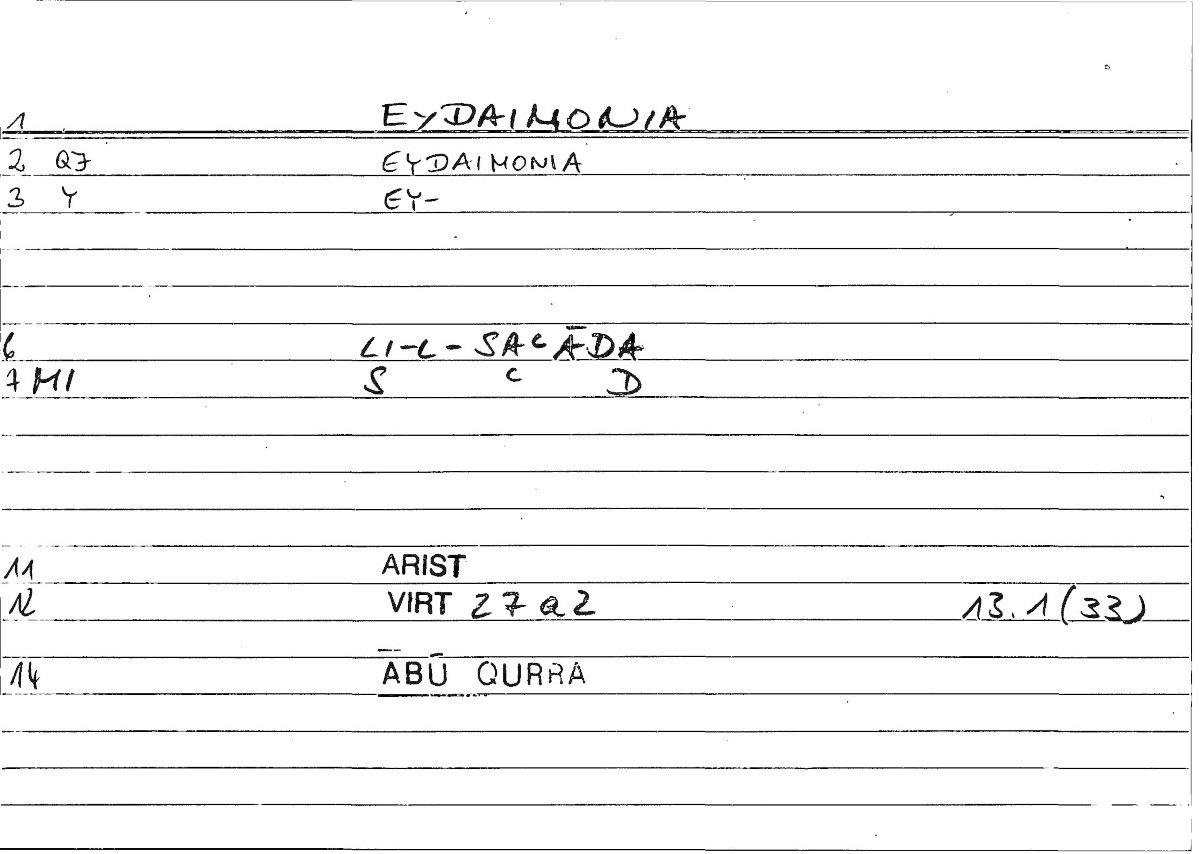 1 EYDAIMONIA
2 Q7 EYDAIMONIA
3 Y EY-
6 LI-L-SAcĀDA
7 MI S c D
11 ARIST
12 VIRT 27a2 13.1(33)
14 ĀBŪ QURRA